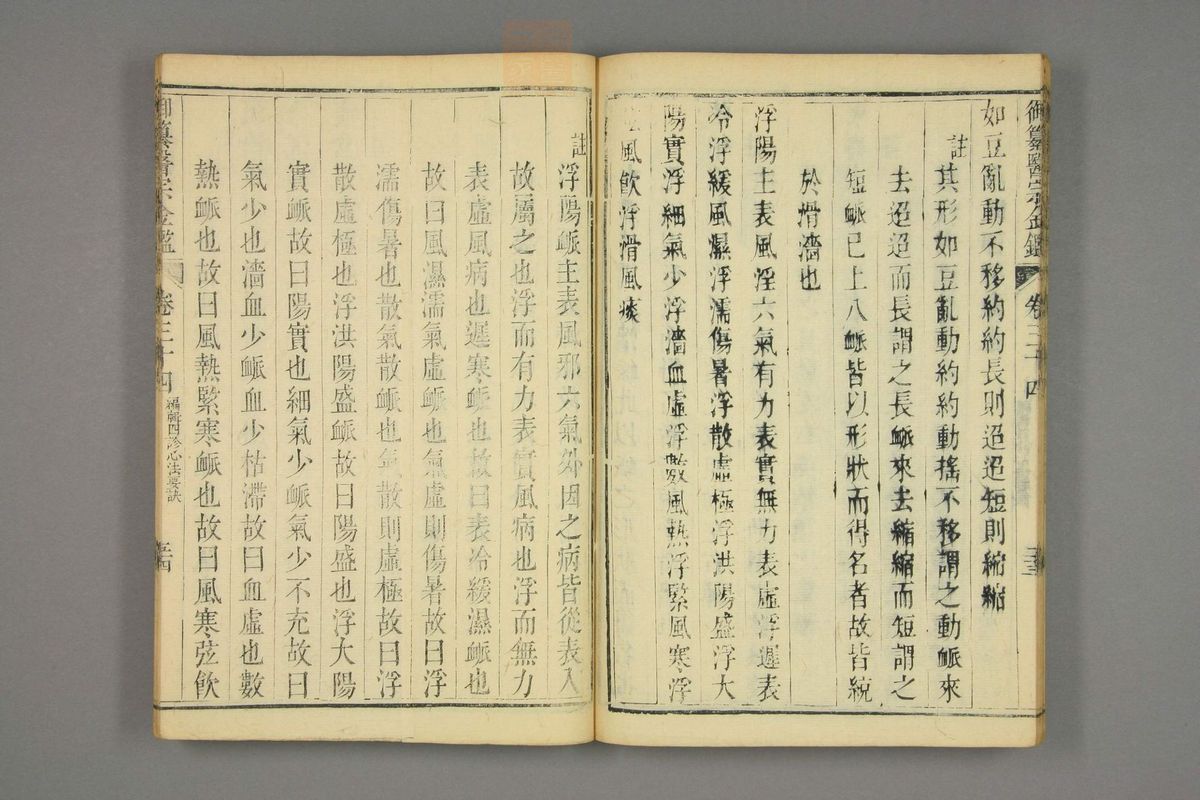 御纂醫宗金鑑 卷三十四 三三
如豆亂動不移約約長則迢迢短則縮縮
註其形如豆亂動約約動搖不移謂之動脈來
去迢迢而長謂之長脈來去縮縮而短謂之
短脈已上八脈皆以形狀而得名者故皆統
於滑濇也
浮陽主表風淫六氣有力表實無力表虛浮遲表
冷浮緩風濕浮濡傷暑浮散虛極浮洪陽盛浮大
陽實浮細氣少浮濇血虛浮數風熱浮緊風寒浮
風飲浮滑風痰
註浮陽脈主表風邪六氣外因之病皆從表入
故屬之也浮而有力表實風病也浮而無力
表虛風病也遲寒脈也故曰表冷緩濕脈也
故曰風濕濡氣虛脈也氣虛則傷暑故曰浮
濡傷暑也散氣散脈也氣散則虛極故曰浮
散虛極也浮洪陽盛脈故曰陽盛也浮大陽
實脈故曰陽實也細氣少脈氣少不充故曰
氣少也濇血少脈血少枯滯故曰血虛也數
熱脈也故曰風熱緊寒脈也故曰風寒弦飲
御纂醫宗金鑑 卷三十四 編輯四診心法要訣